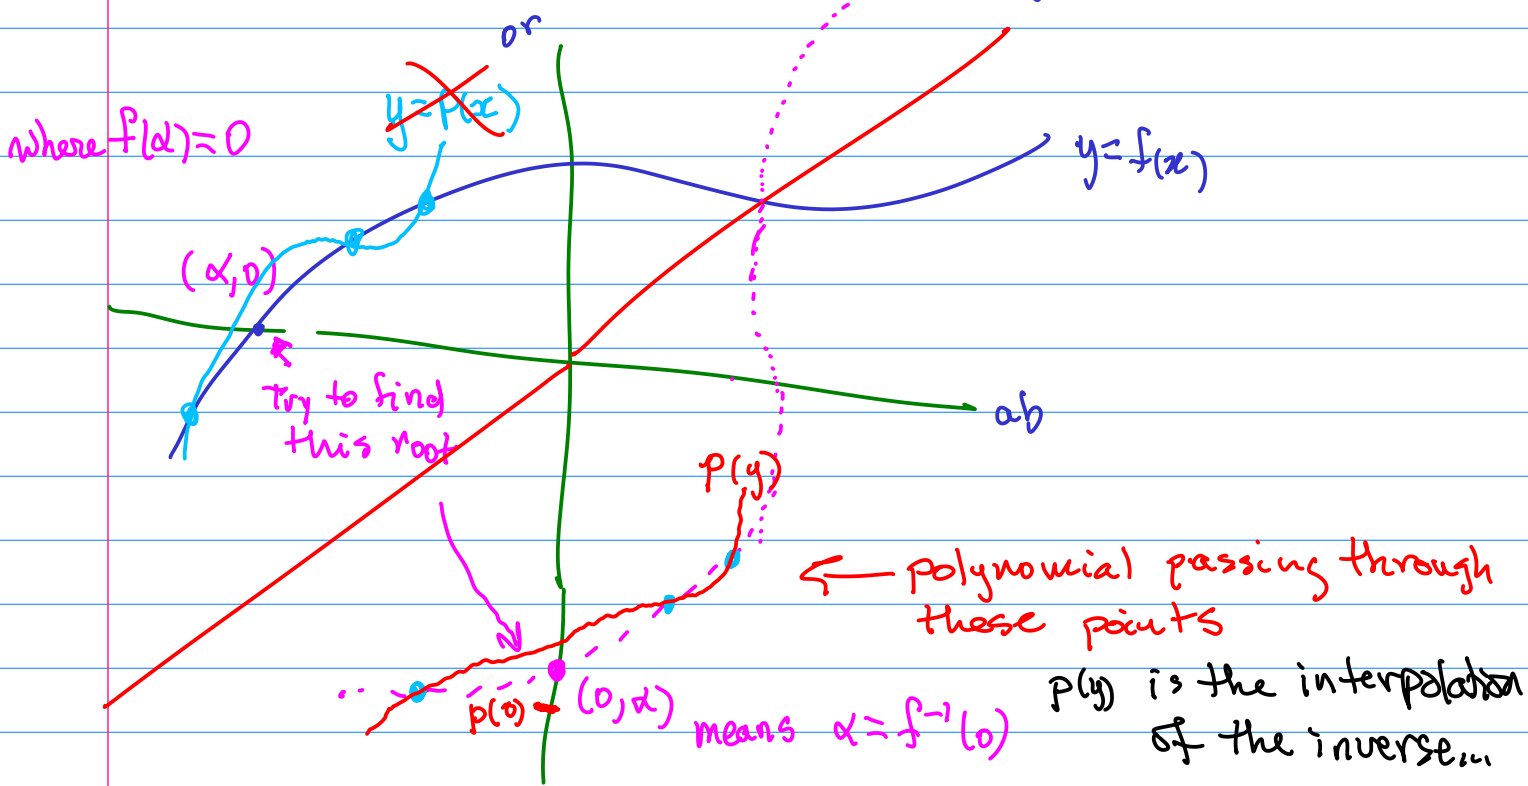 or
y=p(x)
where f(α)=0
y=f(x)
(α,0)
try to find
this root
ab
p(y)
polynomial passing through
these points
p(y) is the interpolation
of the inverse...
p(0)
(0,α)
means α=f⁻¹(0)